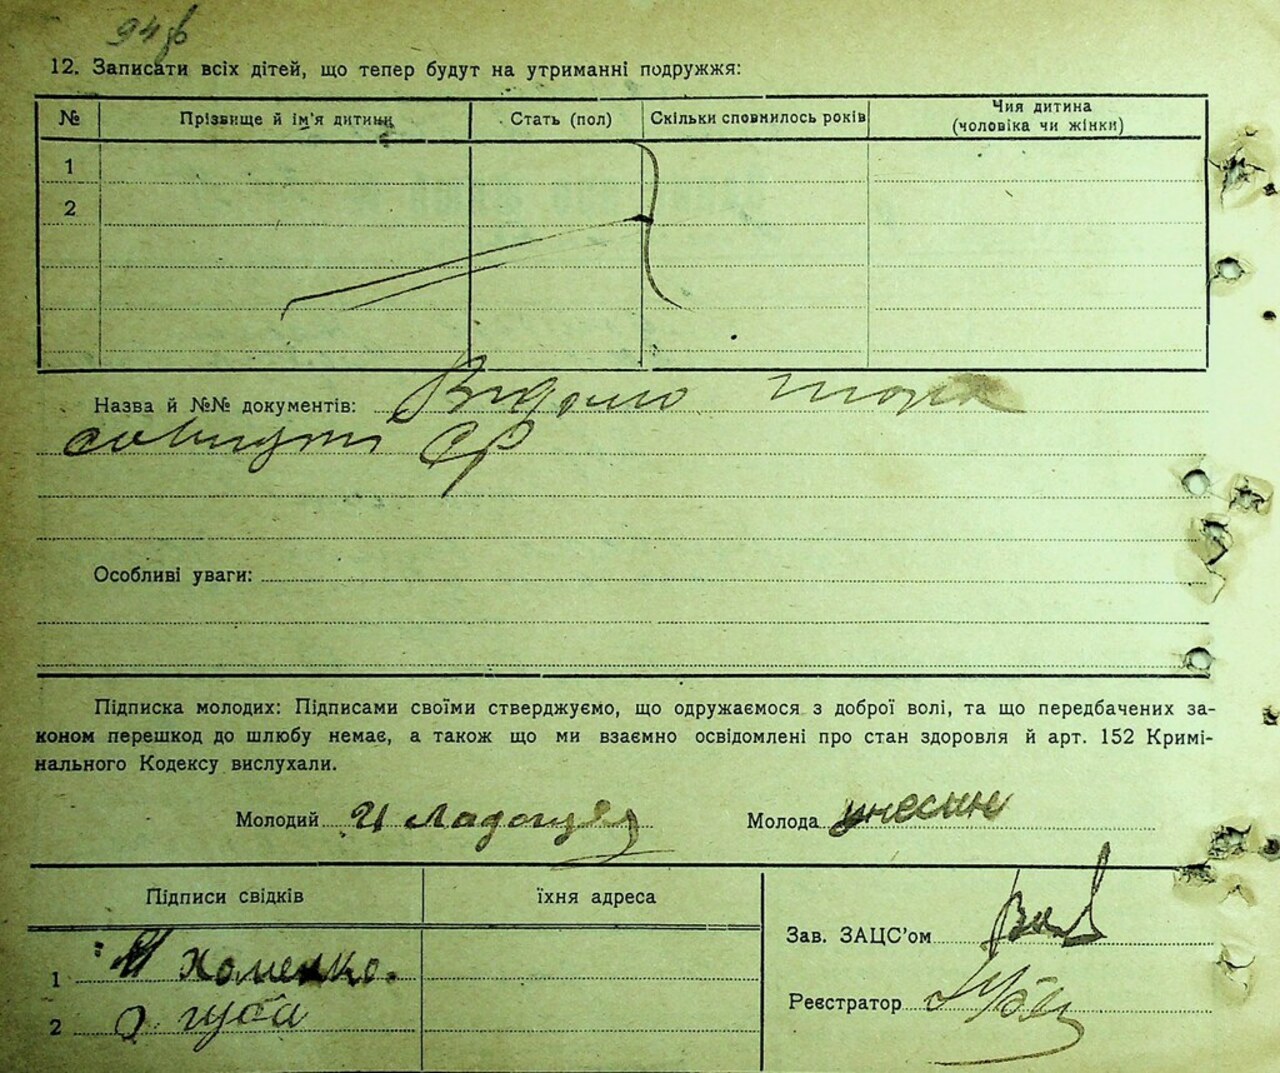 94
12. Записати всіх дітей, що тепер будут на утриманні подружжя:
№ Прізвище й ім'я дитини Стать (пол) Скільки сповнилось років Чия дитина
(чоловіка чи жінки)
1
2
Назва й №№ документів: Видано
Особливі уваги:
Підписка молодих: Підписами своїми стверджуємо, що одружаємося з доброї волі, та що передбачених за-
коном перешкод до шлюбу немає, а також що ми взаємно освідомлені про стан здоровля й арт. 152 Кримі-
нального Кодексу вислухали.
Молодий Молода
Підписи свідків їхня адреса
Зав. ЗАЦС'ом
1 Хоменко.
Реєстратор
2 Губа